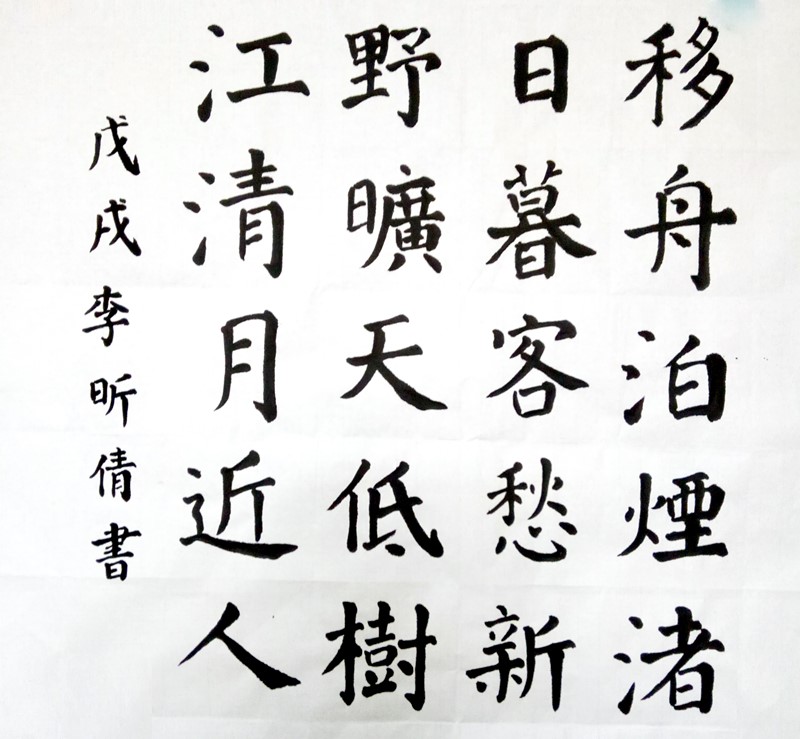 移舟泊煙渚
日暮客愁新
野曠天低樹
江清月近人
戊戌李昕倩書